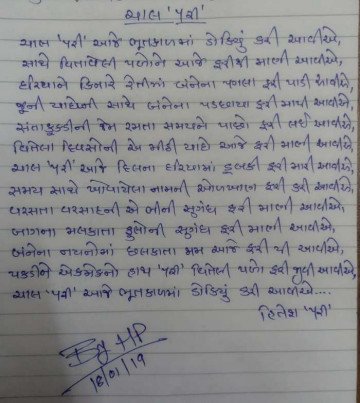 ચાલ 'પરી'
ચાલ 'પરી' આજે ભૂતકાળમાં ડોકિયું કરી આવીએ,
સાથે વિતાવેલી પળોને આજે ફરીથી માણી આવીએ,
દરિયાને કિનારે રેતીમાં બંનેના પગલા ફરી પાડી આવીએ,
જૂની યાદોની સાથે બંનેના પડછાયા ફરી માપી આવીએ,
સંતાકુકડીની જેમ રમતા સમયને પાછો ફરી લઈ આવીએ,
વિતેલા દિવસોની એ મીઠી યાદો આજે ફરી માણી આવીએ,
ચાલ 'પરી' આજે દિલના દરિયામાં ડૂબકી ફરી મારી આવીએ,
સમય સાથે ખોવાયેલા નામની ઓળખાણ ફરી કરી આવીએ,
વરસતા વરસાદની એ ભીની સુગંધ ફરી માણી આવીએ,
બાગના મલકાતા ફુલોની સુગંધ ફરી માણી આવીએ,
બંનેના નયનોમાં છલકાતા મમ આજે ફરી પી આવીએ,
પકડીને એકમેકનો હાથ 'પરી' વિતેલી પળો ફરી જીવી આવીએ,
ચાલ 'પરી' આજે ભૂતકાળમાં ડોકિયું કરી આવીએ....
હિતેશ 'પરી'
By HP
18/01/19